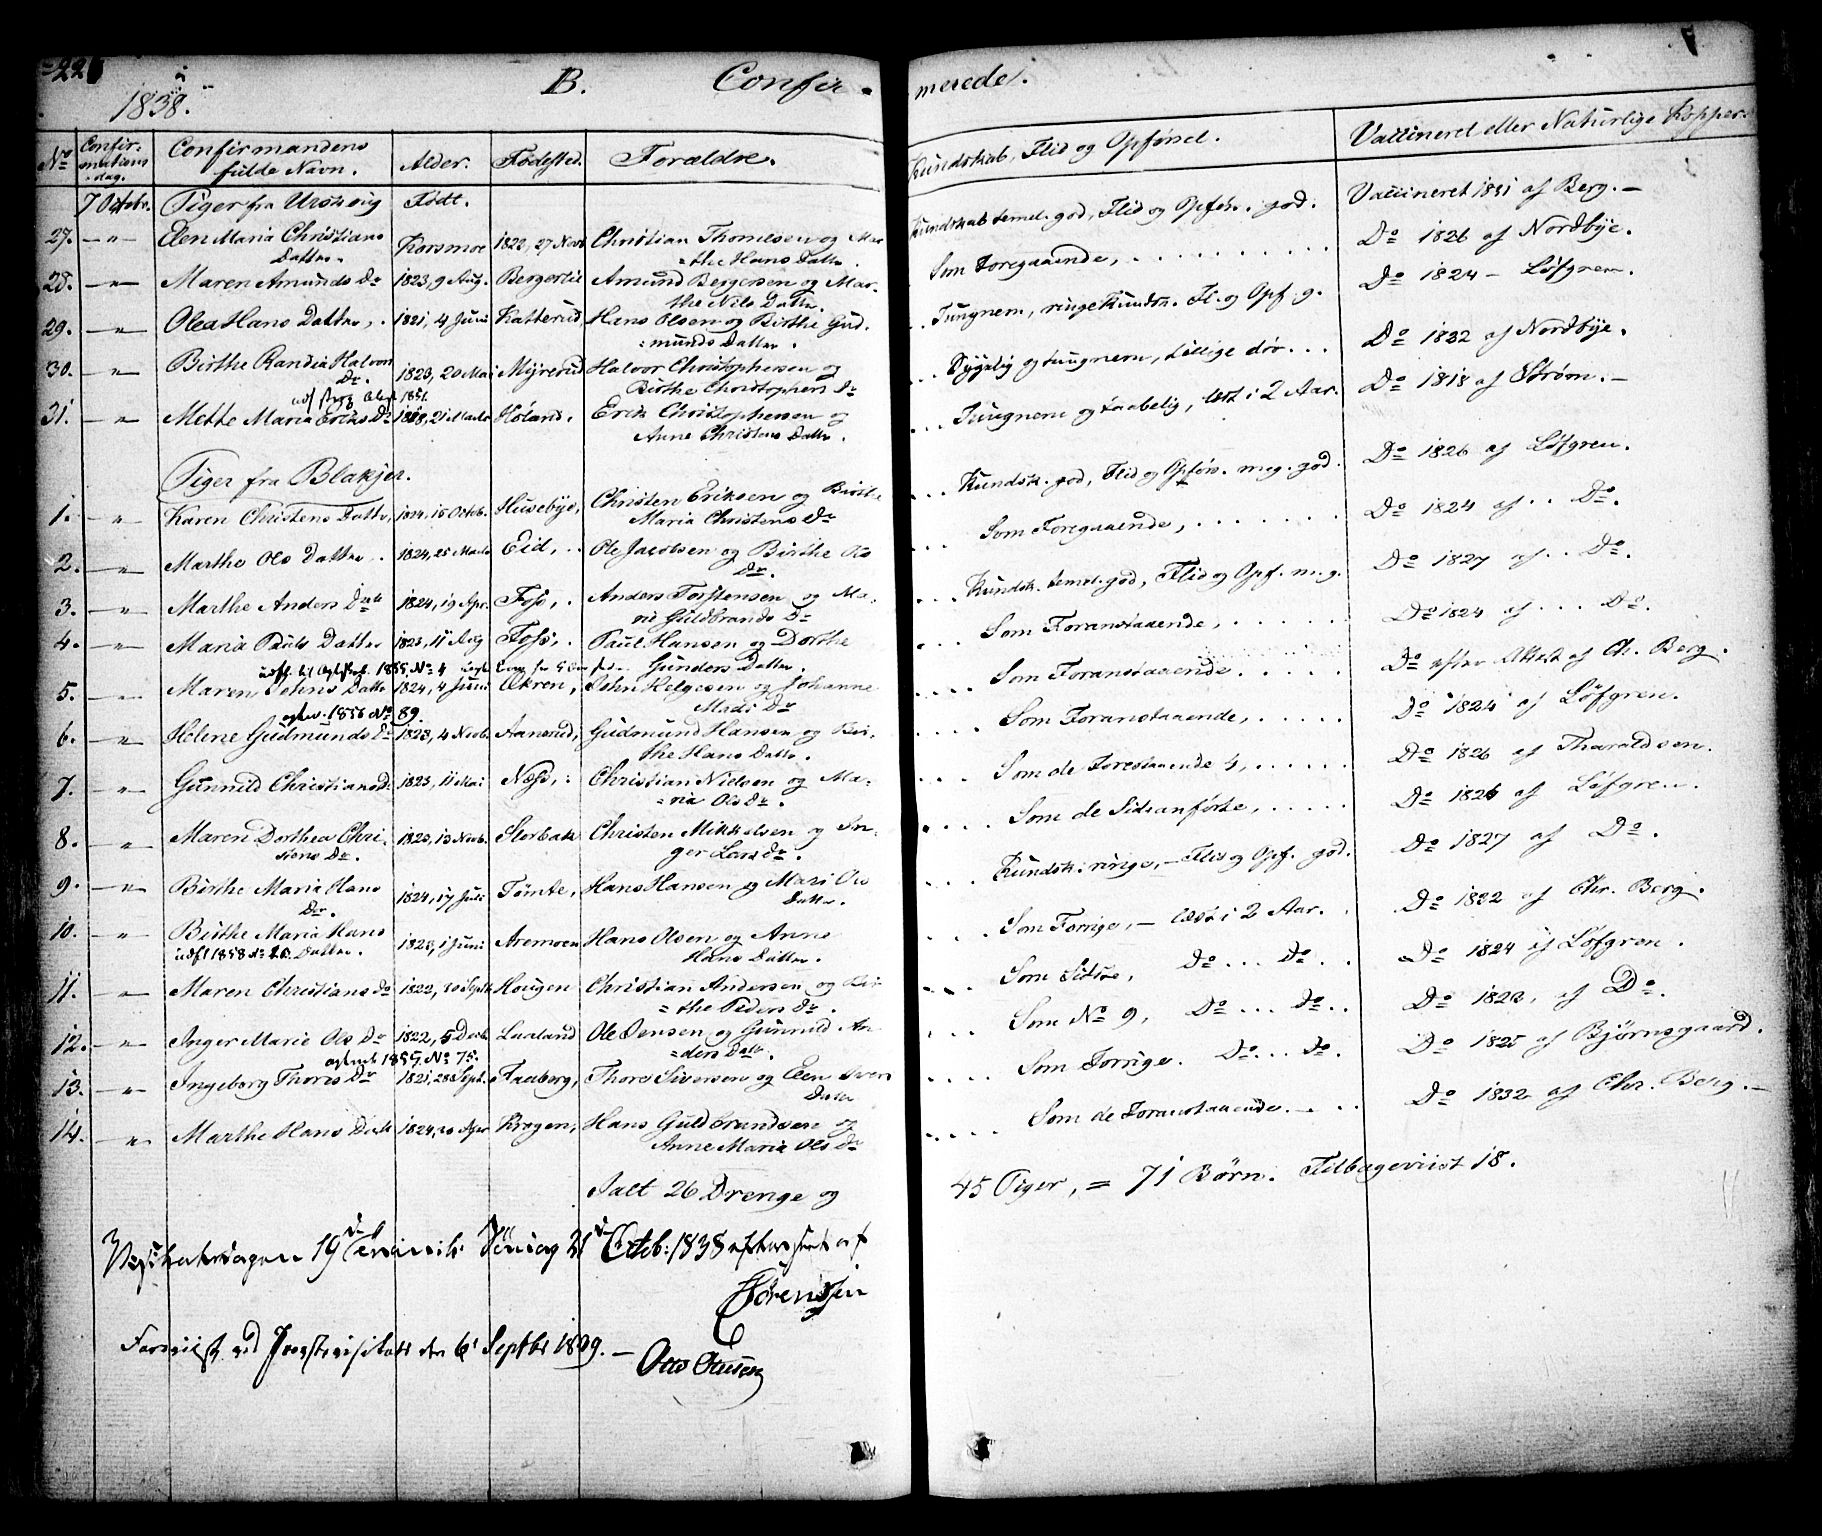 1838.
B. Confir-
merede.
Nr
Confir-
mations
dag.
Confirmandens
fulde Navn.
Alder.
Fødested.
Forældre.
Kundskab, Flid og Opførsel.
Vaccineret eller Naturlige Kopper.
7 Octobr. Piger fra Urskoug Født.
27. Elen Maria Christians Korsmoe 1822, 27 Novb Christian Thomesen og Mar Kundskab temel. god, Flid og Opfør. god. Vaccineret 1831 af Berg.-
Datter. the Hans Datter.
28. Maren Amunds Dr 1823, 9 Aug. Bergerlie Amund Bergersen og Mar- Som Foregaaende, Do 1826 af Nordbye.
the Nils Datter.
29. Olea Hans Datter, 1821, 4 Juni Katterud, Hans Olsen og Birthe Gud- Tungnem, ringe Kundsk. Fl. og Opf. g. Do 1824 - Løfgren.
munds Datter.
30. Birthe Randia Halvors 1823, 20 Mai Mÿrerud Halvor Christophersen og Sygelig og tungnem, tillige døv... Do 1832 af Nordbÿe.
Dr. Birthe Christophers Dr
1851.
31. Mette Maria Eriks Dr 1818, 21 Marts Høland. Erik Christophersen og Tungnem og taabelig, læst i 2 Aar. Do 1818 af Strøm.-
Anne Christens Datter.
Piger fra Blakjer.
1. Karen Christens Datter, 1824, 15 Octob. Husebÿe, Christen Eriksen og Birthe Kundsk. god, Flid og Opfør. meg. god. Do 1826 af Løfgren.
Maria Christens Dr
2. Marthe Ols Datter. 1824, 25 Marts Eid, Ole Jacobsen og Birthe Ols Som Foregaaende, Do 1824 af Do.
Dr.
3. Marthe Anders Datr 1824, 19 Apr. Foss, Anders Torstensen og Ma- Kundsk. temel. god, Flid og Opf. m. g. Do 1827 af Do.
rie Guldbrands Dr
4. Maria Pauls Datter 1823, 11 Aug Foss, Paul Hansen og Dorthe Som Foranstaaende, Do 1824 af Do.
Gunders Datter.
5. Maren Johns Datter 1824, 4 Juni Økren, John Helgesen og Johanne Som Foranstaaende Do efter Attest af Ch. Berg.
1856 No 89. Mads Dr
6. Helene Gudmunds Dr 1823, 4 Novb. Aanerud, Gudmund Hansen og Bir- Som Foranstaaende, Do 1824 af Løfgren.
the Hans Datter.
7. Gunnild Christians Dr 1823, 11 Mai Næss, Christian Nielsen og Ma- Som de Forestaaende 4, Do 1826 af Tharaldsen.
ria Ols Dr.
8. Maren Dorthea Chri- 1823, 13 Novb. Storbak Christen Mikkelsen og In- Som de Sidsanførte, Do 1826 af Løfgren.
stens Dr. ger Lars Dr.
9. Birthe Maria Hans 1824, 17 Juli Tønte, Hans Hansen og Mari Ols Kundsk. ringe, - Flid og Opf. god. Do 1827 af Do.
Dr. Datter.
10. Birthe Maria Hans 1823, 1 Juni Aremoen Hans Olsen og Anne Som Forrige, - læst i 2 Aar. Do 1822 af Chr. Berg.
1858 Datter. Hans Datter.
11. Maren Christians Dr 1822, Septb Hougen Christian Andersen og Bir Som Sidste, Do ... Do Do 1824 af Løfgren.
the Peders Dr.
12. Inger Marie Ols Dr 1822, 5 Decb. Lauland Ole Jensen og Gunnild An- Som No 9, Do ... Do Do 1822, af Do.
ders Datr.
No 75.
13. Ingeborg Thores Dr 1821, 28 Sept. Faaberg, Thore Siversen og Elen Ivers Som Forrige. Do ... Do. Do 1825 af Bjørnsgaard.
Datter
14. Marthe Hans Datr 1824, 20 Apr Kragen, Hans Guldbrandsen og Som de Foranstaaende. Do 1832 af Chr. Berg.-
Anne Maria Ols Dr
Ialt 26 Drenge og 45 Piger, = 71 Børn. Tilbageviist 18.
19de Søndag 21de Octb: 1838 af
Sørenssen
Foreviist ved Provstevisitats den 6te Septbr 1839. -
Otto